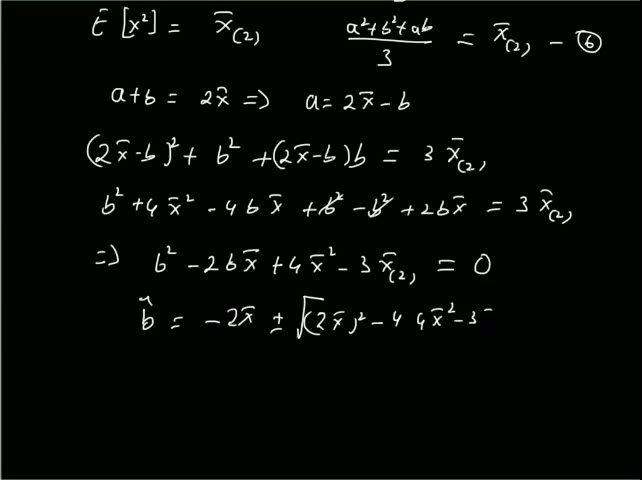 E [x²] = x̄₍₂₎   (a²+b²+ab)/3 = x̄₍₂₎ – ⑥
a+b = 2x̄ => a = 2x̄ – b
(2x̄-b)² + b² + (2x̄-b)b = 3 x̄₍₂₎
b² + 4x̄² - 4bx̄ + b² - b² + 2bx̄ = 3 x̄₍₂₎
=> b² - 2bx̄ + 4x̄² - 3x̄₍₂₎ = 0
b̂ = - 2x̄ ± √(2x̄)² - 4 4x̄² - 3